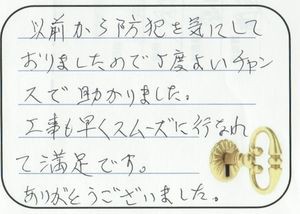 以前から防犯を気にして
おりましたので丁度よいチャン
スで助かりました。
工事も早くスムーズに行なわれ
て満足です。
ありがとうございました。